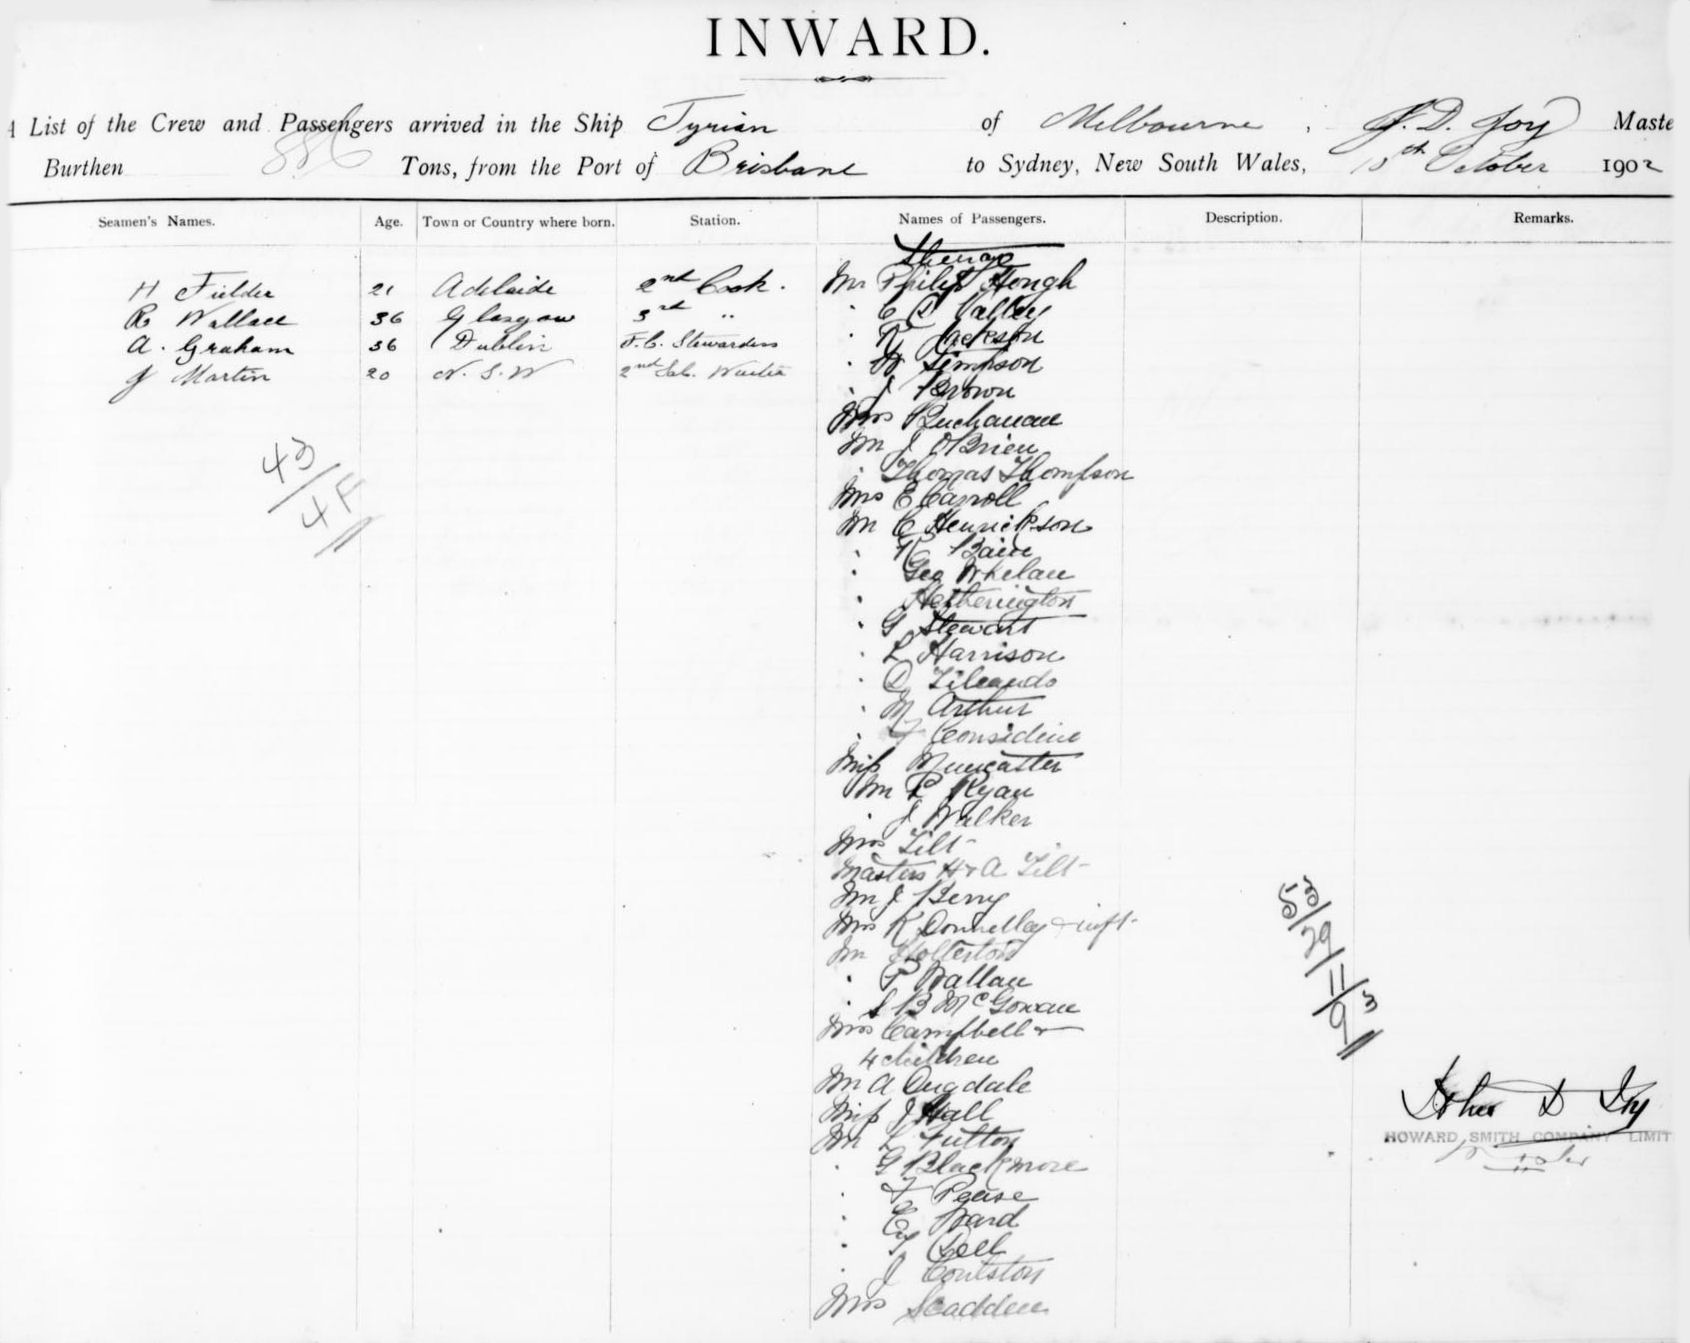 INWARD.
A List of the Crew and Passengers arrived in the Ship Tyrian of Melbourne, J. D. Joy Maste
Burthen 886 Tons, from the Port of Brisbane to Sydney, New South Wales, 15th October 1902
Seamen's Names. Age. Town or Country where born. Station. Names of Passengers. Description. Remarks.
Steerage
H Fielder 21 Adelaide 2nd Cook.
R Wallace 36 Glasgow 3rd "
A. Graham 36 Dublin F.C. Stewardess
J Martin 20 N.S.W 2nd Sal. Waiter
Mr Philip Hough
" C C Valley
" R Jackson
" W Simpson
" J Brown
Mrs Buchanan
Mr J O'Brien
" Thomas Thompson
Mrs E Carroll
Mr C Henrickson
" Bain
" Geo Whelan
" Hetherington
" G Stewart
" L Harrison
" D
" M Arthur
" Considine
Miss Muncaster
Mr P Ryan
" J Walker
Mrs Tilt
Masters H & A Tilt
Mr J Berry
Mrs K Donnelley & inft
Mr
" P Wallace
" S B McGowan
Mrs Campbell &
4 children
Mr A Dugdale
Miss J Hall
Mr L Fulton
" G Blackmore
" F Pease
" E Ward
" Bell
" J Coulston
Mrs Scadden
43/4F
53/29/11/93
D Joy
HOWARD SMITH COMPANY LIMIT